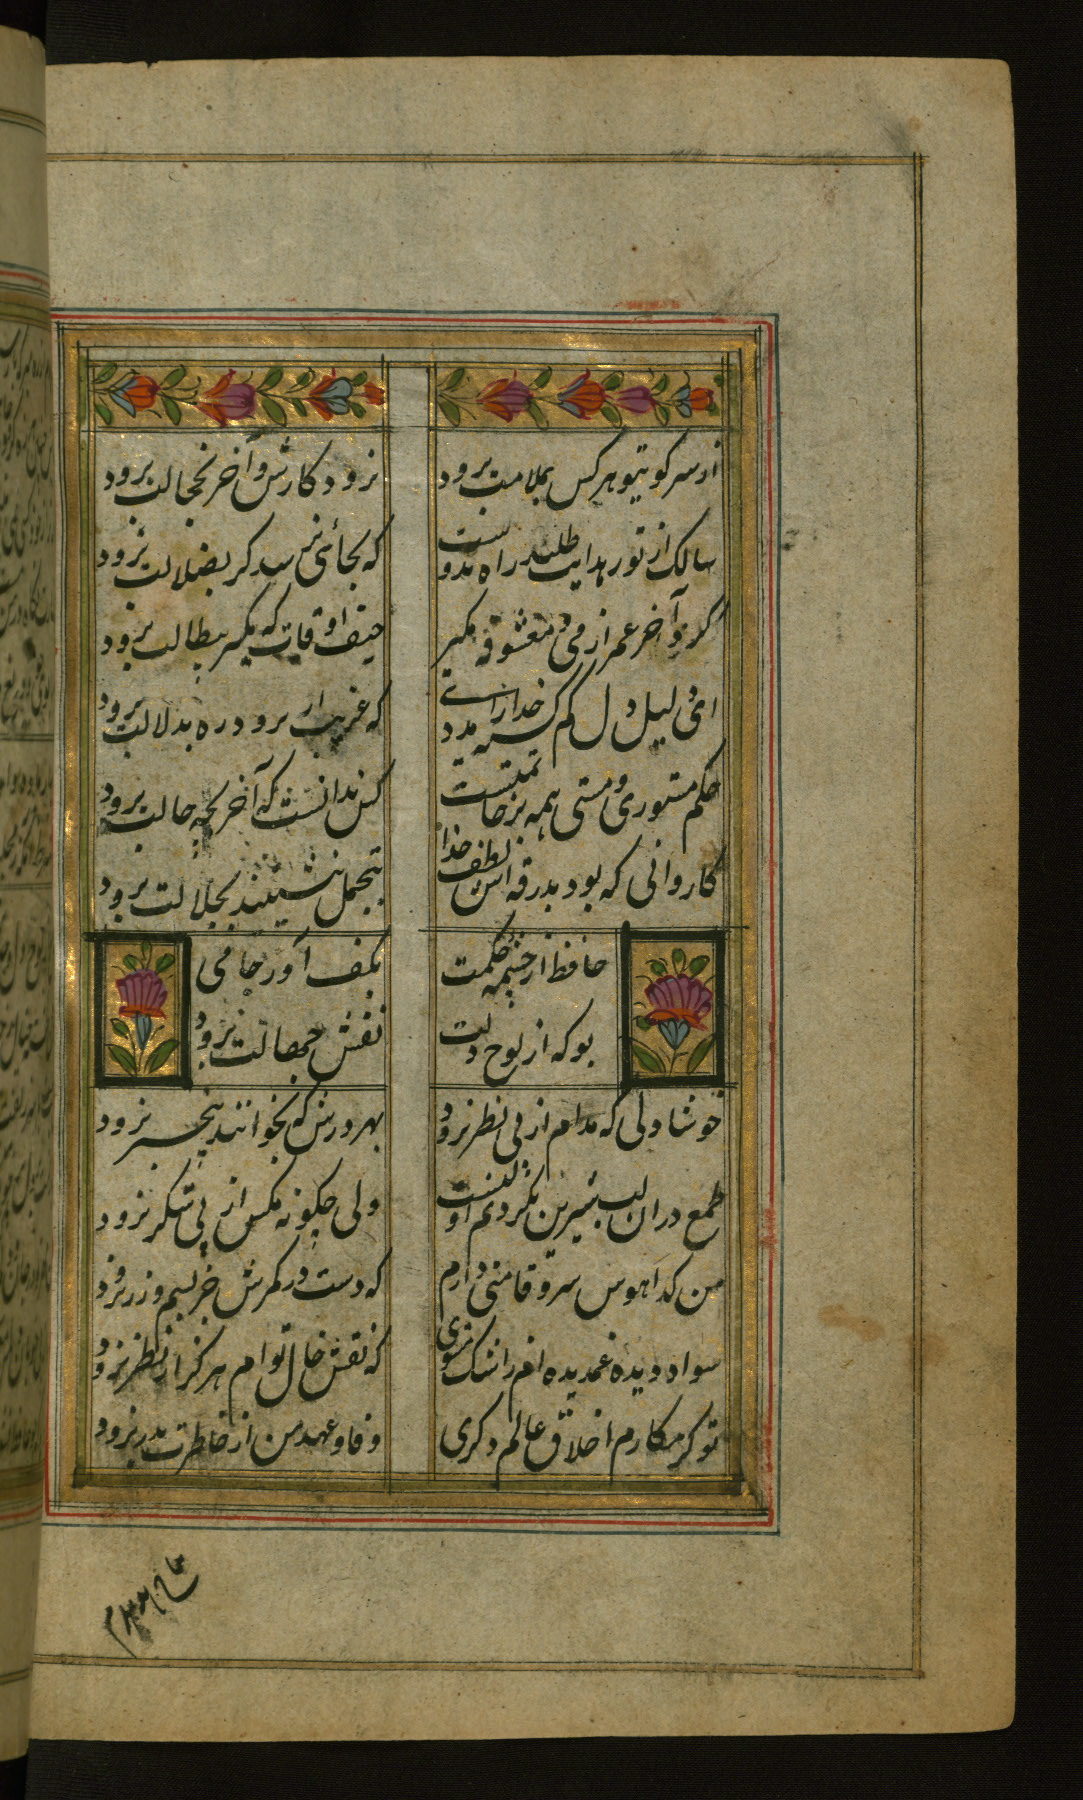 از سر کوی تو هر کس بملامت برود
نرود کارش و آخر بخجالت برود
سالک از نور هدایت طلبد راه بدوست
که بجائی نرسد گر بضلالت برود
گروی آخر عمر از می و معشوقه بگیر
حیف اوقات که یکسر ببطالت برود
ای دلیل دل گم گشته خدا را مددی
که غریب ار نبرد ره بدلالت برود
حکم مستوری و مستی همه بر خاتمتست
کس ندانست که آخر بچه حالت برود
کاروانی که بود بدرقه اش لطف خدا
بتجمل بنشیند بجلالت برود
حافظ از چشمه حکمت
بکف آور جامی
بو که از لوح دلت
نقش جهالت برود
خوشا دلی که مدام از پی نظر نرود
بهر درش که بخوانند بیخبر نرود
طمع در ان لب شیرین نکردنم اولیست
ولی چگونه مگس از پی شکر نرود
من گدا هوس سرو قامتی دارم
که دست در کمرش جز بسیم و زر نرود
سواد دیده غمدیده ام را شک مشوی
که نقش خال توام هرگز از نظر نرود
تو کز مکارم اخلاق عالم دگری
وفا و عهد من از خاطرت بدر نرود